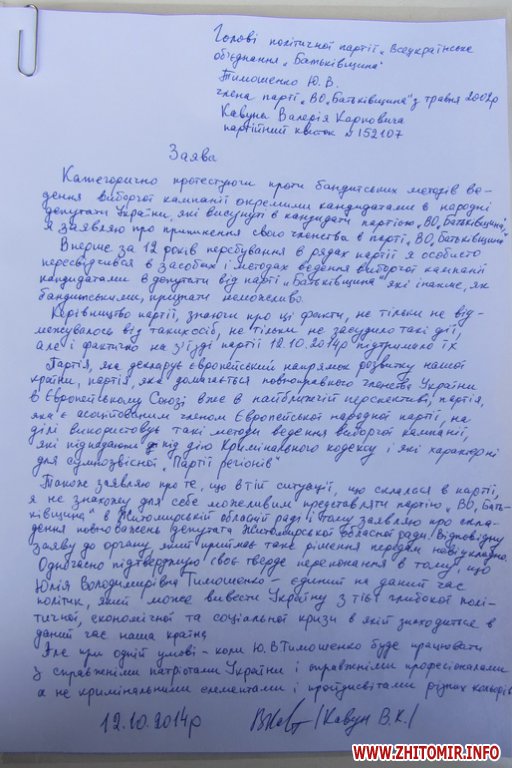 Голові політичної партії „Всеукраїнське
об'єднання „Батьківщина"
Тимошенко Ю. В.
члена партії „ВО„Батьківщина" з травня 2002р
Кавуна Валерія Карповича
партійний квиток №152107
Заява
Категорично протестуючи проти бандитських методів ве-
дення виборчої кампанії окремими кандидатами в народні
депутати України, які висунуті в кандидати партією „ВО„Батьківщина",
Я заявляю про припинення свого членства в партії „ВО„Батьківщина"
Вперше за 12 років перебування в рядах партії я особисто
пересвідчився в засобах і методах ведення виборчої кампанії
кандидатами в депутати від партії „Батьківщина" які інакше, як
бандитськими, признати неможливо.
Керівництво партії, знаючи про ці факти, не тільки не від-
межувалось від таких осіб, не тільки не засудило такі дії,
але і фактично на з'їзді партії 12.10.2014р підтримало їх
Партія, яка декларує європейський напрямок розвитку нашої
країни, партія, яка домагається повноправного членства України
в Європейському Союзі вже в найближчій перспективі, партія,
яка є асоційованим членом Європейської народної партії, на
ділі використовує такі методи ведення виборчої кампанії,
які підпадають під дію Кримінального кодексу і які характерні
для сумнозвісної „Партії регіонів"
Також заявляю про те, що в тій ситуації, що склалася в партії,
я не знахожу для себе можливим представляти партію „ВО„Бать-
ківщина" в Житомирській обласній раді і тому заявляю про скла-
дення повноважень депутата Житомирської обласної ради. Відповідну
заяву до органу, який приймає таке рішення передам невідкладно.
Одночасно підтверджую своє тверде переконання в тому, що
Юлія Володимирівна Тимошенко - єдиний на даний час
політик, який може вивести Україну з тієї глибокої полі-
тичної, економічної та соціальної кризи в якій знаходиться в
даний час наша країна.
Але при одній умові - коли Ю.В Тимошенко буде працювати
з справжніми патріотами України і справжніми професіоналами
а не кримінальними елементами і пройдисвітами різних кольорів
12.10.2014р /Кавун В.К./
WWW.ZHITOMIR.INFO